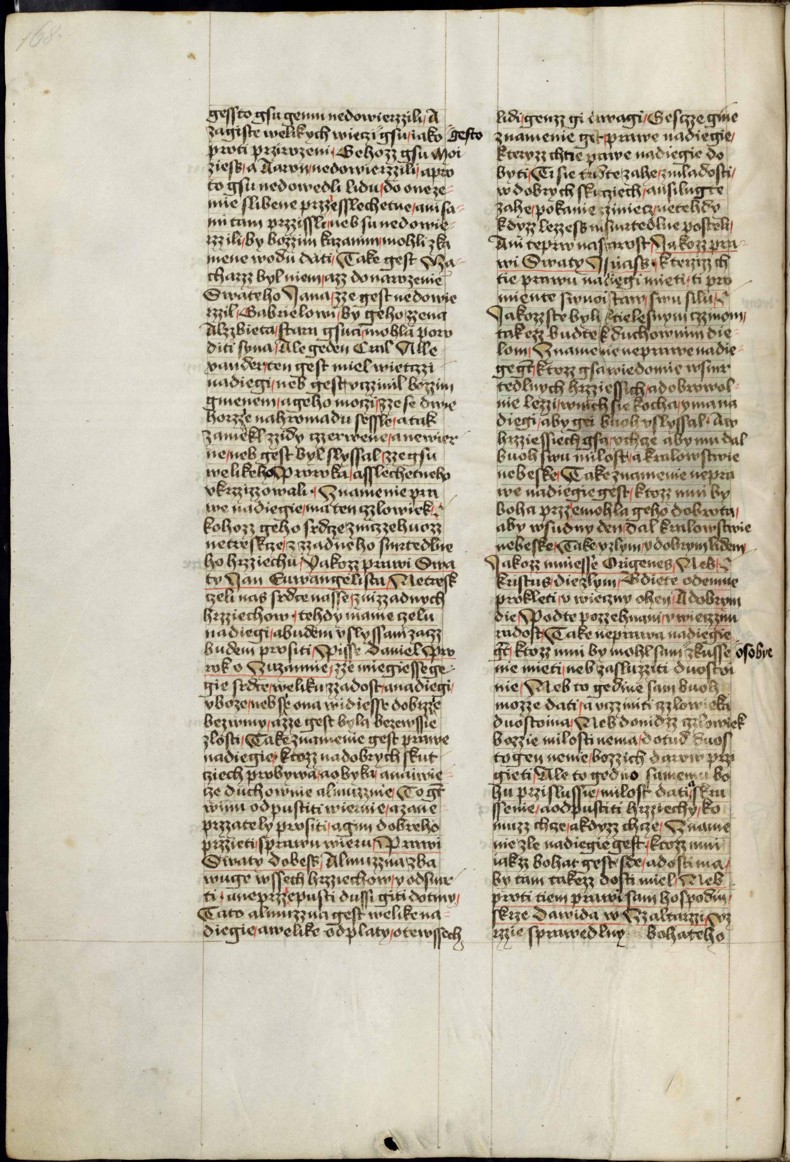 168.
gessto gsu gemu nedowierzzili/ A
zagiste welikych wieczi gsu/ iako
gesto
proti przirozeni/ Gehozz gsu Moi
ziess/ a Aaron/ nedowierzzili/ a pro
to gsu nedowedli lidu/ do oneze-
mie slibene przzesslechetne/ ani sa-
mi tam przzissli/ neb su nedowie-
rzzili/ by bozzim kazanim/ mohli z ka
mene wodu dati/ Take gest Za-
charzz byl niem/ azz do narozenie
Swateho Jana/ zze gest nedowie
rzzil/ Gabrielowi/ by geho zzena
Alzzbieta/ stara gsuci/ mohla poro
diti syna/ Ale geden Cral Alle
xander/ ten gest miel wietczi
nadiegi/ neb gest vczinil bozzim
gmenem/ a geho moczi/ zze se dwie
horzze nahromadu sessle/ a tak
zamekl zzidy czerwene/ a newier
ne/ neb gest byl slyssal/ zze gsu
welikeho Proroka/ asslechetneho
vkrzizzowali/ Znamenie pra
we nadiegie/ ma ten czlowiek/
kohozz geho srdcze z niczzehozz
netresкcze/ z zzadneho smrtedlne
ho hrziechu/ Jakozz prawi Swa
ty Jan Euwangelista/ Netresk
czeli nas srdce nasse/ z nizzadnych
hrziechow/ tehdy mame czelu
nadiegi/ a budem vslyssani zacz
budem prositi/ Pisse Daniel Pro
rok o Zuzannie/ zze miegiesse ge-
gie srdce weliku zzadost/ a nadiegi/
v boze/ neb se ona widiesse dobrzze
bezwiny/ azze gest byla bezewssie
zlosti/ Take znamenie gest prawe
nadiegie/ ktozz na dobrych skut
cziech probywa/ a obyka/ a naiwie-
cze duchownie almuzznie/ To gt
winu odpustiti wiernie/ a zane
przzately prositi/ a gim dobreho
przzieti/ sprawu wieru/ Prawi
Swaty Dobess/ Almuzzna zba
wuge wssech hrziechow/ y od smr
ti/ a ne przzepusti dussi giti do tmy/
Tato almuzzna gest welike na-
diegie/ a welike odplaty/ ote wssech
lidi/ genzz gi dawagi/ Gesczze gine
znamenie gt prawe nadiegie/
kteryzz chtie prawe nadiegie do
byti/ Ti sie trudte zahe/ z mladosti/
w dobrych skutcziech/ a usilugte
zahe/ pokanie czinieti/ ne tehdy
kdyzz lezzess na smrtedlne posteli/
Ani teprw na starost/ Jakozz pra-
wi Swaty Isaiass/ kterzizz ch
tie prawu nadiegi mieti/ ti pro
miente swuoi staw/ swu silu/
Jakozz ste byli/ tielesnym czzinom/
takezz budte k duchownim die-
lom/ Znamenie neprawe nadie-
ge gt/ ktozz gsa wiedomie w smr
tedlnych hrzziessich/ a dobrowol-
nie lezzi/ w nich sie kocha/ y ma na
diegi/ aby gei buoh vslyssal/ A w
hrzziessiech gsa/ vchcze aby mu dal
buoh swu milost/ a kralowstwie
nebeske/ Take znamenie nepra
we nadiegie gest/ ktozz mni by
boha przzemohla geho dobrota/
aby w sudny den/ dal kralowstwie
nebeske/ Take zlym y dobrym lidem/
Jakozz mniesse Origenes/ Neb
Kristus die zlym/ Gdiete odemne
prokleti/ v wieczny ohen/ A dobrym
die/ Podte pozzehnani/ v wiecznu
radost/ Take neprawa nadiegie
gt/ ktozz mni by mohl sam zkusse
osobye
nie mieti/ neb zasluzziti duostoi
nie/ Neb to gedine sam buoh
mozze dati/ a vcziniti czlowieka
duostoina/ Neb donidzz czlowiek
bozzie milosti nema/ dotud duos
toyen nenie/ bozzich darow przi
gieti/ Ale to gedno samemu bo
hu przislussie/ milost dati/ skru
ssenie/ a odpustiti hrzziechy/ ko
muzz chcze/ a kdyzz chcze/ Zname
nie zle nadiegie gest/ ktozz mni
iakzz bohat gest sde/ a dosti ma/
by tam takezz dosti miel/ Neb
proti tiem prawi sam hospodin/
skrze Dawida w Zzaltarzzi/ Uz
rzzie sprawedlny bohateho